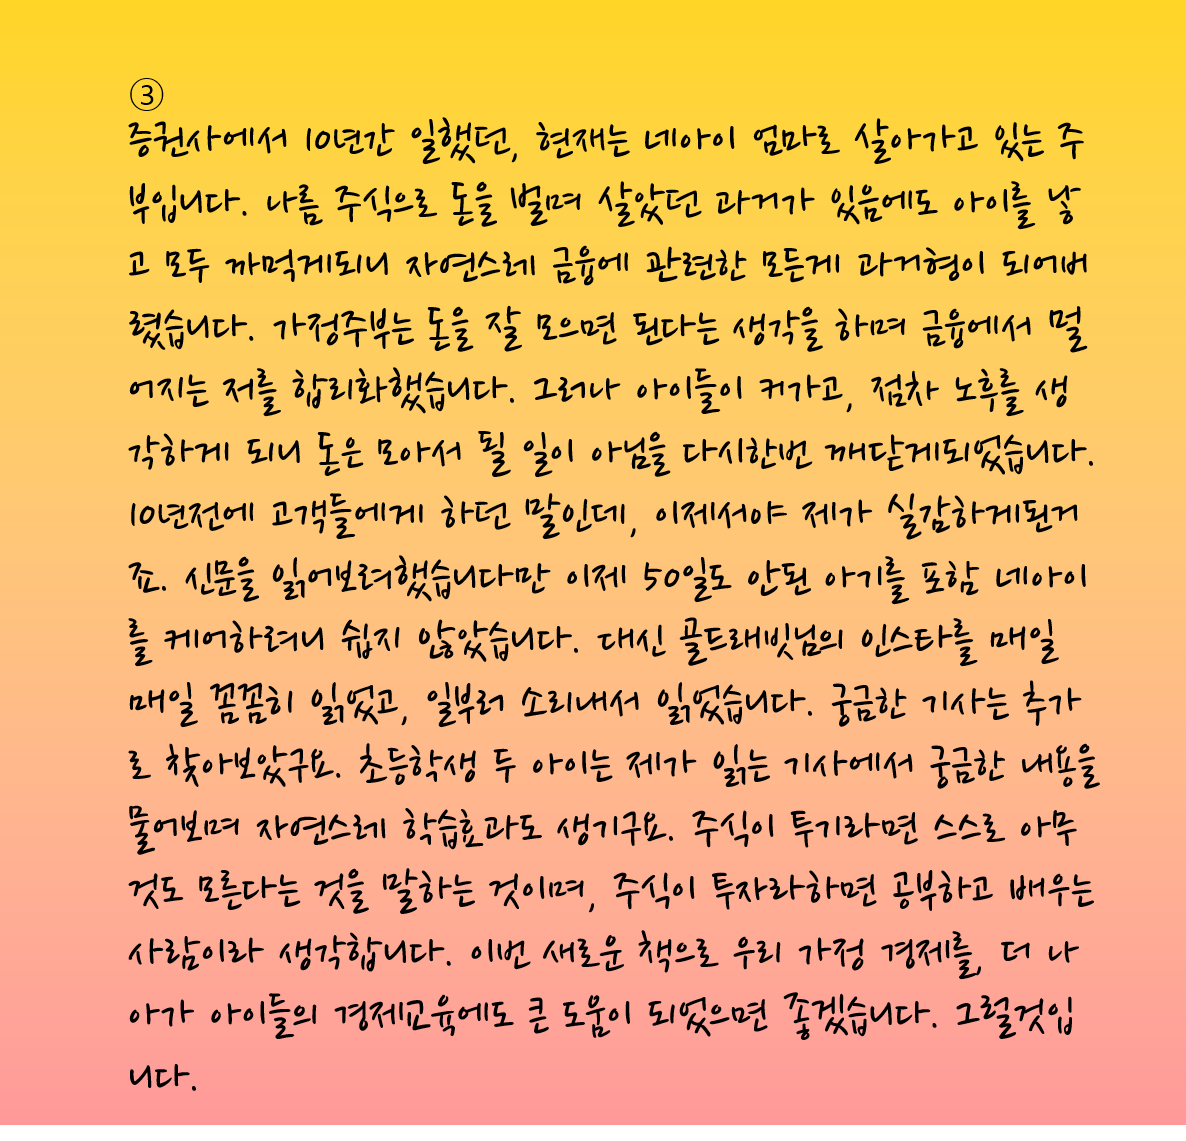 ③
증권사에서 10년간 일했던, 현재는 네아이 엄마로 살아가고 있는 주
부입니다. 나름 주식으로 돈을 벌며 살았던 과거가 있음에도 아이를 낳
고 모두 까먹게되니 자연스레 금융에 관련한 모든게 과거형이 되어버
렸습니다. 가정주부는 돈을 잘 모으면 된다는 생각을 하며 금융에서 멀
어지는 저를 합리화했습니다. 그러나 아이들이 커가고, 점차 노후를 생
각하게 되니 돈은 모아서 될 일이 아님을 다시한번 깨닫게되었습니다.
10년전에 고객들에게 하던 말인데, 이제서야 제가 실감하게된거
죠. 신문을 읽어보려했습니다만 이제 50일도 안된 아기를 포함 네아이
를 케어하려니 쉽지 않았습니다. 대신 골드래빗님의 인스타를 매일
매일 꼼꼼히 읽었고, 일부러 소리내서 읽었습니다. 궁금한 기사는 추가
로 찾아보았구요. 초등학생 두 아이는 제가 읽는 기사에서 궁금한 내용을
물어보며 자연스레 학습효과도 생기구요. 주식이 투기라면 스스로 아무
것도 모른다는 것을 말하는 것이며, 주식이 투자라하면 공부하고 배우는
사람이라 생각합니다. 이번 새로운 책으로 우리 가정 경제를, 더 나
아가 아이들의 경제교육에도 큰 도움이 되었으면 좋겠습니다. 그럴것입
니다.